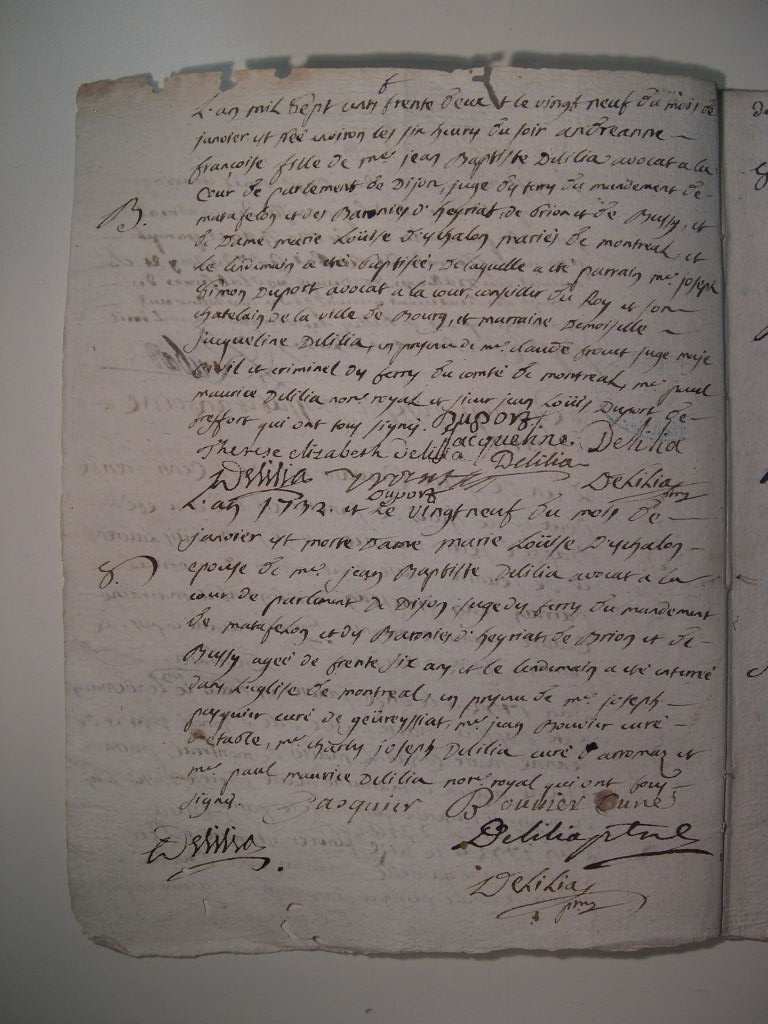 L'an mil sept cents trente deux et le vingt neuf du mois de
janvier est née environ les six heures du soir andreanne
françoise fille de me. jean Baptiste Delilia avocat a la
Cour de parlement de Dijon, juge des terres du mandement de
B. matafelon et des Baronies d'heyriat, de brion et de Bussy, et
de Dame marie Loüise D'Eschalon mariés de montreal, et
le lendemain a eté baptisée, de laquelle a eté parrain me. joseph
Simon Duport avocat a la cour, conseiller du Roy et son
chatelain de la ville de Bourg, et marraine Demoiselle
jacqueline Delilia, en presence de me. claude juge maje
civil et criminel des terres du comté de montreal, me. paul
maurice Delilia notre. royal et sieur jean Loüis Duport de
qui ont tous signés. Duport
Therese elizabeth Delilia jacqueline. Delilia
Delilia Delilia Delilia
Duport
L'an 1732. et le vingt neuf du mois de
janvier est morte Dame marie Loüise D'Eschalon
S. epouse de me. jean Baptiste Delilia avocat a la
cour de parlement de Dijon juge des terres du mandement
de matafelon et des Baronies d'heyriat, de Brion et de
Bussy ageé de trente six ans et le lendemain a eté enterreé
dans L'eglise de montreal, en presence de me. joseph
pasquier curé de geüreyssiat, me. jean Bouvier curé
d'etable, me. charles joseph Delilia curé d'arromaz et
me. paul maurice Delilia notre. royal qui ont tous
signés. Pasquier Bouvier Curé
Delilia Delilia
Delilia